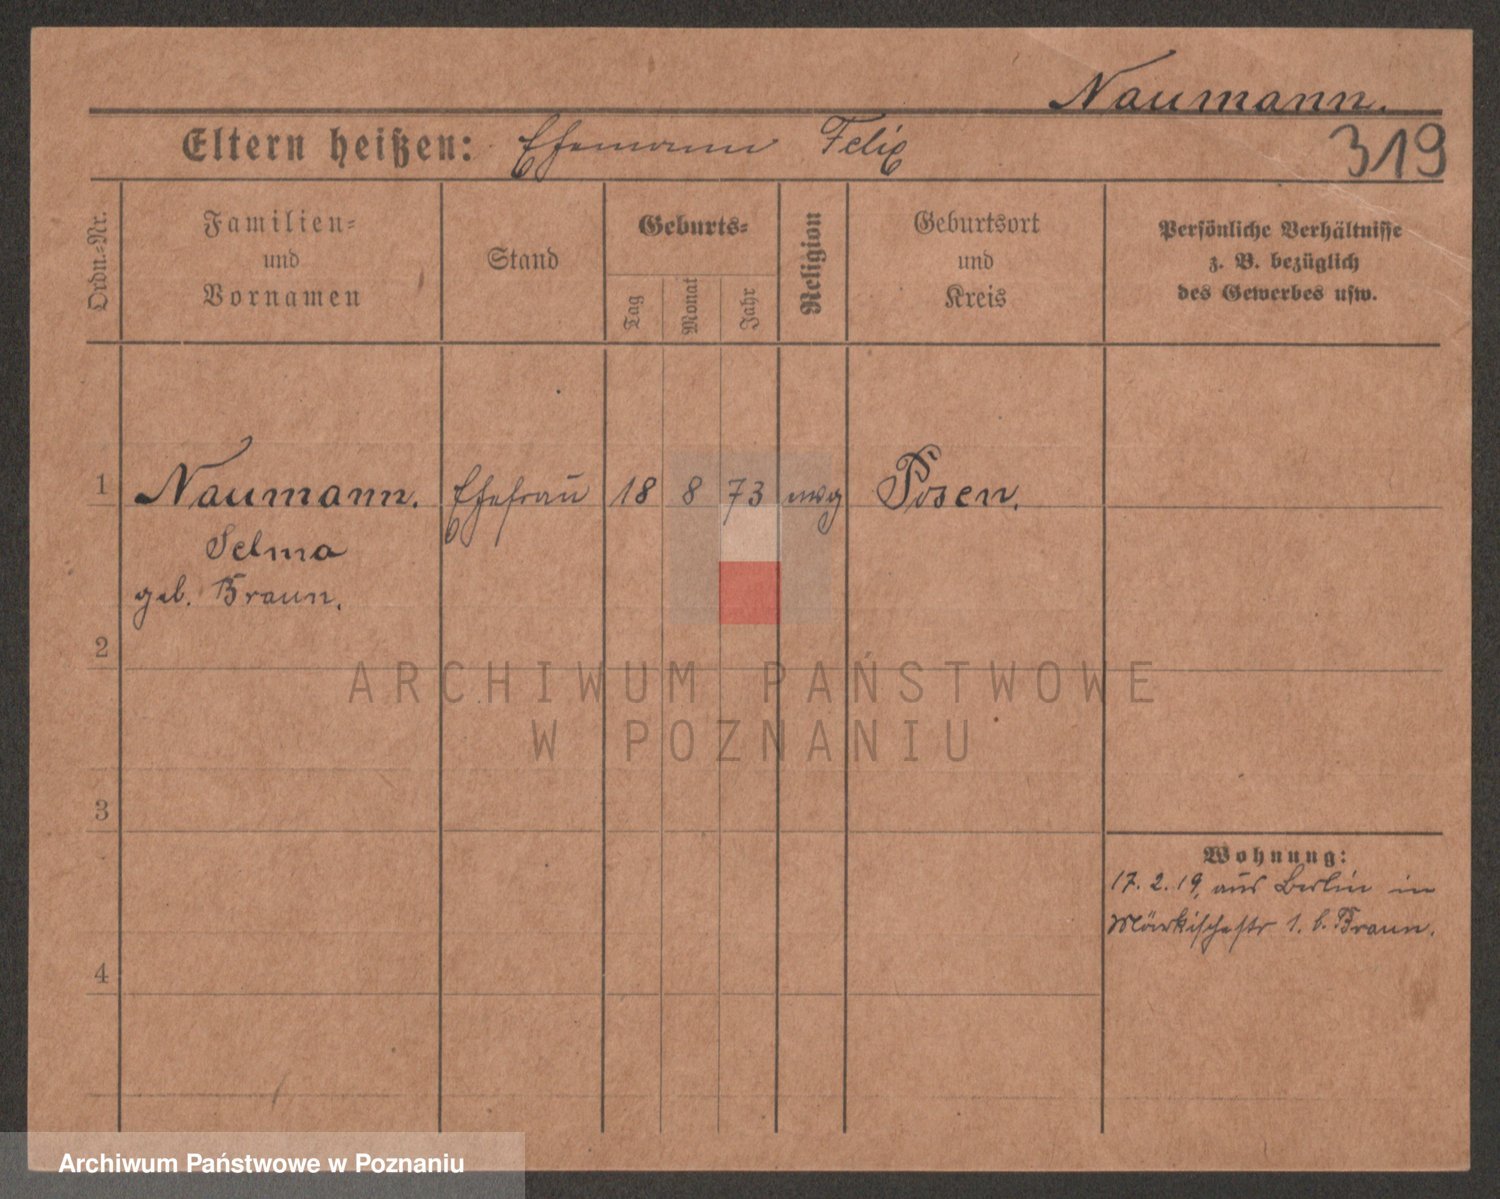 Naumann.
Eltern heißen: Ehemann Felix
319
Ordn.-Nr.
Familien-
und
Vornamen
Stand
Geburts-
Tag
Monat
Jahr
Religion
Geburtsort
und
Kreis
Persönliche Verhältnisse
z. B. bezüglich
des Gewerbes usw.
1 Naumann. Ehefrau 18 8 73 Posen.
Selma
geb. Braun.
2
ARCHIWUM PAŃSTWOWE
W POZNANIU
3
Wohnung:
17. 2. 19, aus Berlin in
Märkischestr 1. b. Braun.
4
Archiwum Państwowe w Poznaniu